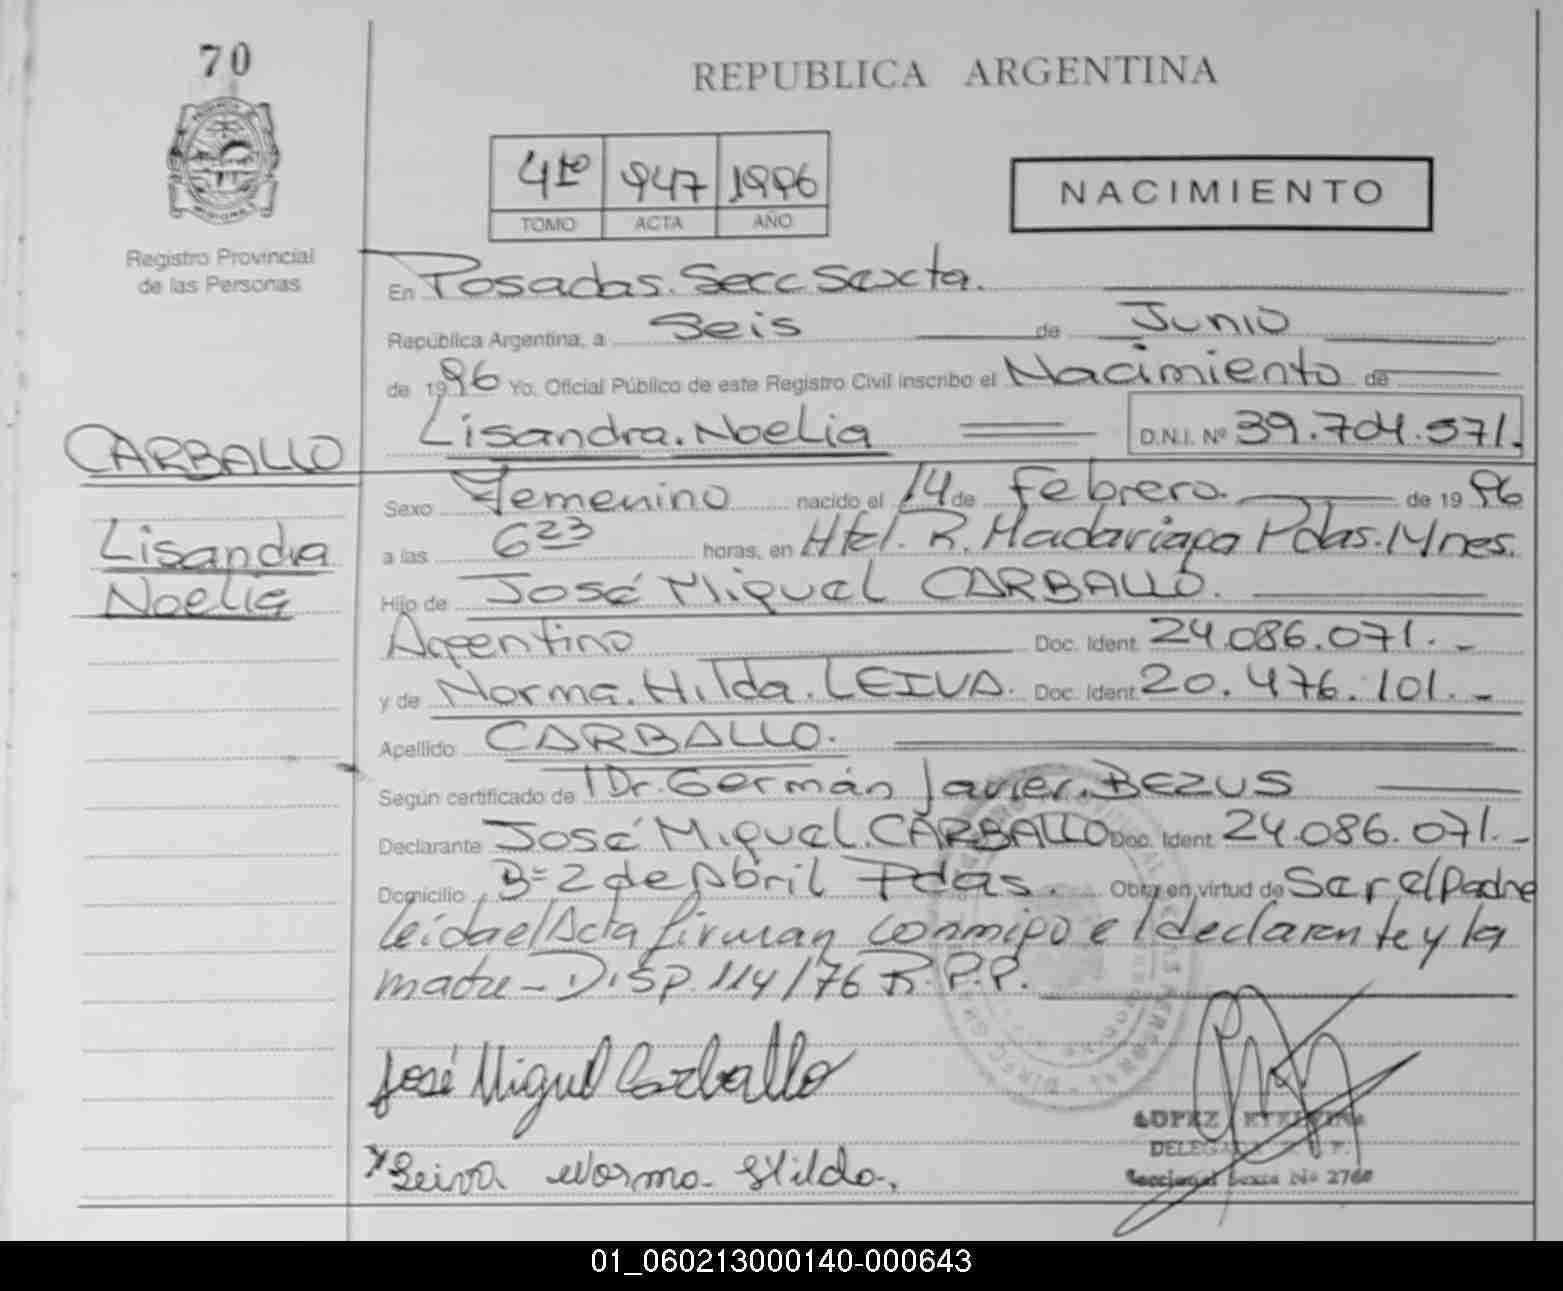 70
REPUBLICA ARGENTINA
4to 947 1996
TOMO ACTA AÑO
NACIMIENTO
Registro Provincial
de las Personas
En Posadas. Secc Sexta.
República Argentina, a Seis de Junio
de 1996 Yo, Oficial Público de este Registro Civil inscribo el Nacimiento de
Lisandra. Noelia D.N.I. Nº 39.704.571.
CARBALLO
Lisandra
Noelia
Sexo Femenino nacido el 14 de Febrero. de 1996
a las 6 23 horas, en Htal. R. Madariaga Pdas. Mnes.
Hijo de José Miguel CARBALLO.
Argentino Doc. Ident. 24.086.071.-
y de Norma. Hilda. LEIVA. Doc. Ident. 20.476.101.-
Apellido CARBALLO.
Según certificado de Dr. Germán Javier. BEZUS
Declarante José Miguel. CARBALLO Doc. Ident. 24.086.071.-
Domicilio B= 2 de Abril Pdas. Obra en virtud de Ser el Padre
leída el Acta firman conmigo el declarante y la
madre - DISP. 114/76 R.P.P.
José Miguel Carballo
Leiva Norma Hilda.
LOPEZ
Seccional Sexta Nº 2760
01_060213000140-000643